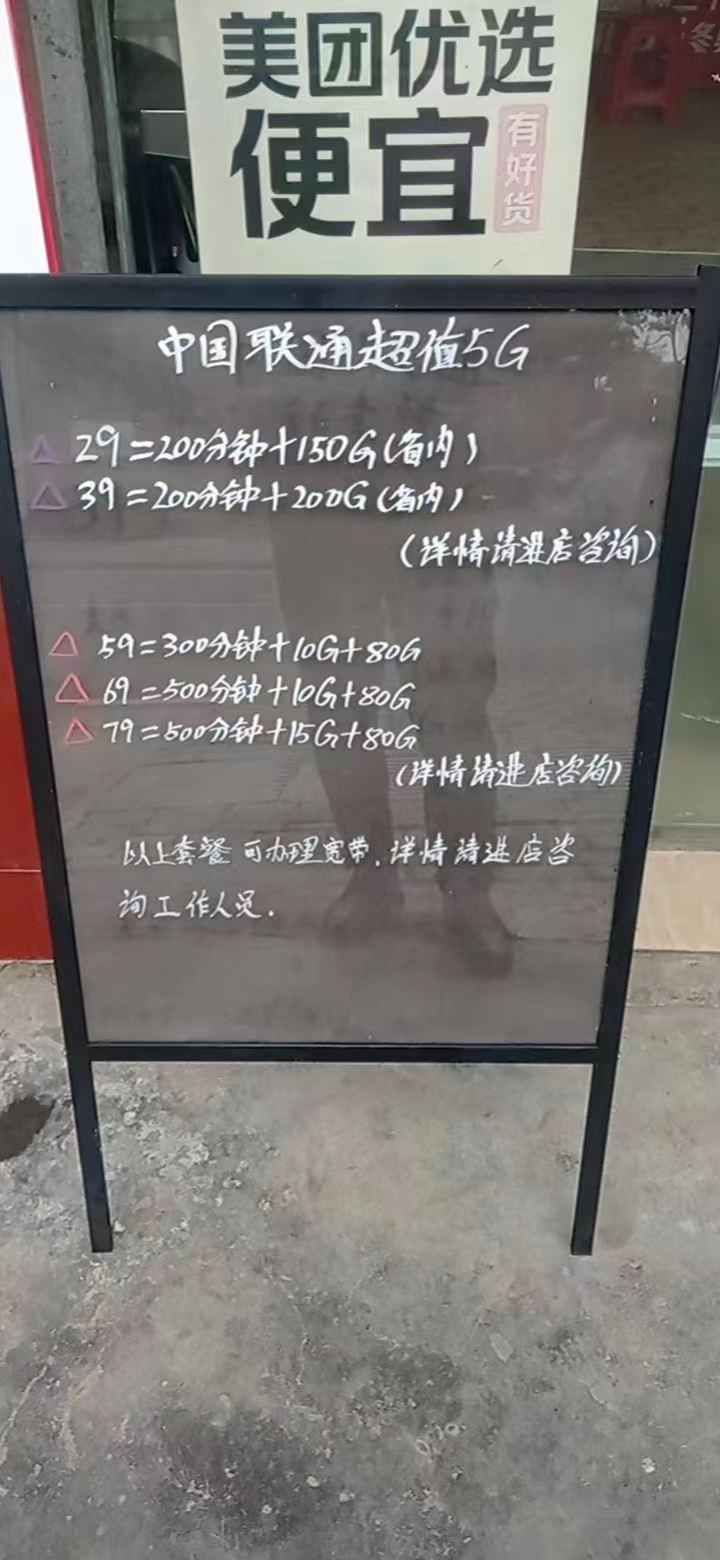 美团优选
便宜
有好货
中国联通超值5G
△ 29=200分钟+150G(省内)
△ 39=200分钟+200G(省内)
(详情请进店咨询)
△ 59=300分钟+10G+80G
△ 69=500分钟+10G+80G
△ 79=500分钟+15G+80G
(详情请进店咨询)
以上套餐可办理宽带.详情请进店咨
询工作人员.